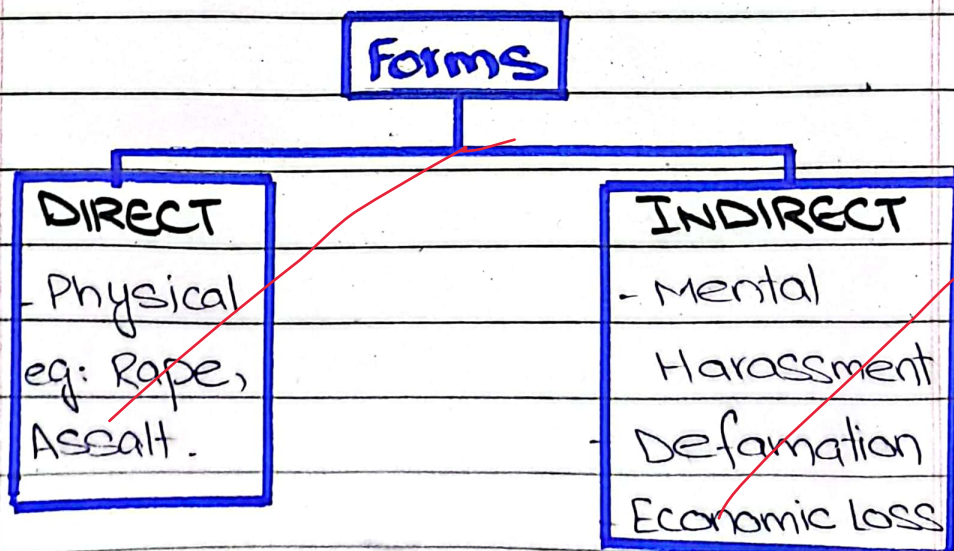 Forms
DIRECT
- Physical
eg: Rape,
Assalt.
INDIRECT
- Mental
Harassment
- Defamation
- Economic Loss